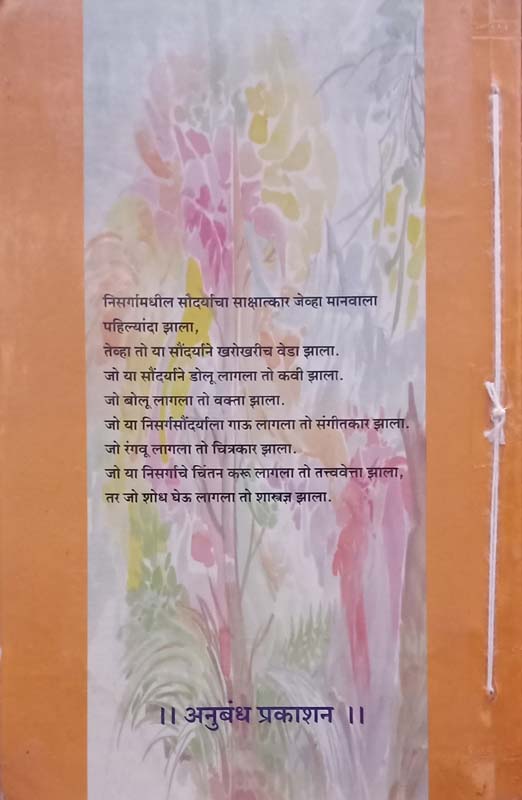 निसर्गामधील सौंदर्याचा साक्षात्कार जेव्हा मानवाला
पहिल्यांदा झाला,
तेव्हा तो या सौंदर्याने खरोखरीच वेडा झाला.
जो या सौंदर्याने डोलू लागला तो कवी झाला.
जो बोलू लागला तो वक्ता झाला.
जो या निसर्गसौंदर्याला गाऊ लागला तो संगीतकार झाला.
जो रंगवू लागला तो चित्रकार झाला.
जो या निसर्गाचे चिंतन करू लागला तो तत्त्ववेत्ता झाला,
तर जो शोध घेऊ लागला तो शास्त्रज्ञ झाला.
।। अनुबंध प्रकाशन ।।